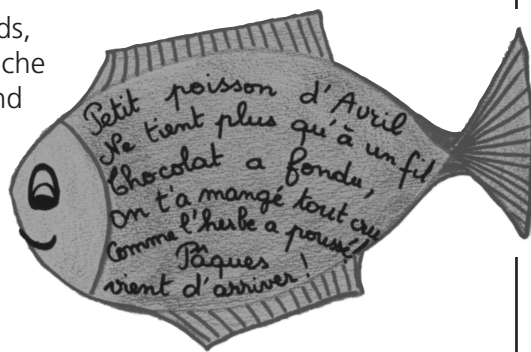 ds,
che
nd
Petit poisson d'Avril
Ne tient plus qu'à un fil
Chocolat a fondu,
on t'a mangé tout cru
Comme l'herbe a poussé!
Pâques
vient d'arriver !